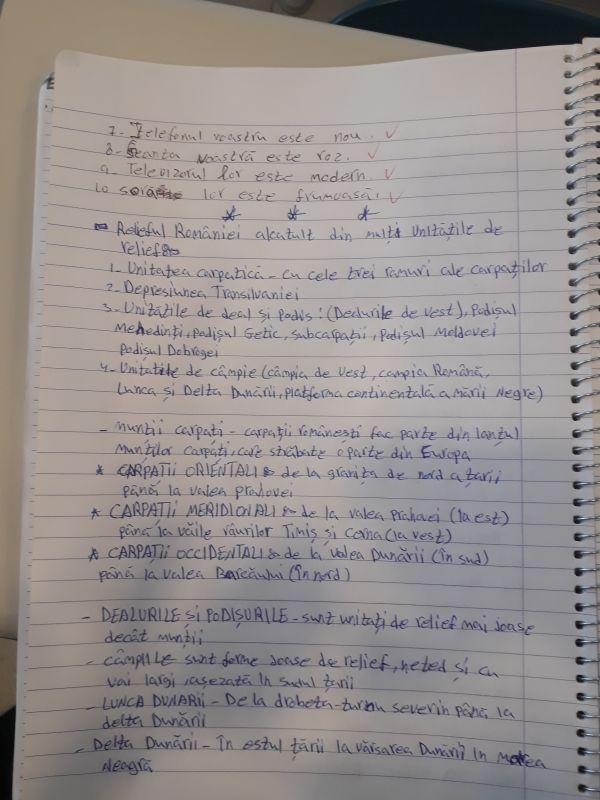 7- Telefonul voastru este nou.
8- Geanta voastră este roz.
9- Televizorul lor este modern.
10 sora lor este frumoasă.
* * *
- Relieful României alcatult din mulți unitățile de
relief
1- Unitatea carpatică - cu cele trei ramuri ale carpaților
2- Depresiunea Transilvaniei
3- Unitățile de deal și podus: (Dealurile de vest), podișul
Mehedinți, podișul Getic, subcarpații, podișul Moldovei
podișul Dobrogei
4- Unitatile de câmpie (câmpia de Vest, campia Română,
Lunca și Delta Dunării, platforma continentală a mării Negre)
- munții carpați - carpații românești fac parte din lanțul
munților carpați, care străbate o parte din Europa
* CARPAȚII ORIENTALI de la granița de nord a țarii
până la valea prahovei
* CARPAȚII MERIDIONALI de la valea prahovei (la est)
până la văile râurilor Timiș și Cerna (la vest)
* CARPAȚII OCCIDENTALI de la valea Dunării (în sud)
până la valea Barcăului (în nord)
- DEALURILE și PODIȘURILE - sunt unitați de relief mai joase
decât munții
- câmpiile sunt forme joase de relief, neted și cu
vai largi, așezată în sudul țarii
- LUNCA DUNARII - De la drobeta-turnu severin până la
delta Dunării
- Delta Dunării - în estul țării la vărsarea Dunării în marea
Neagră